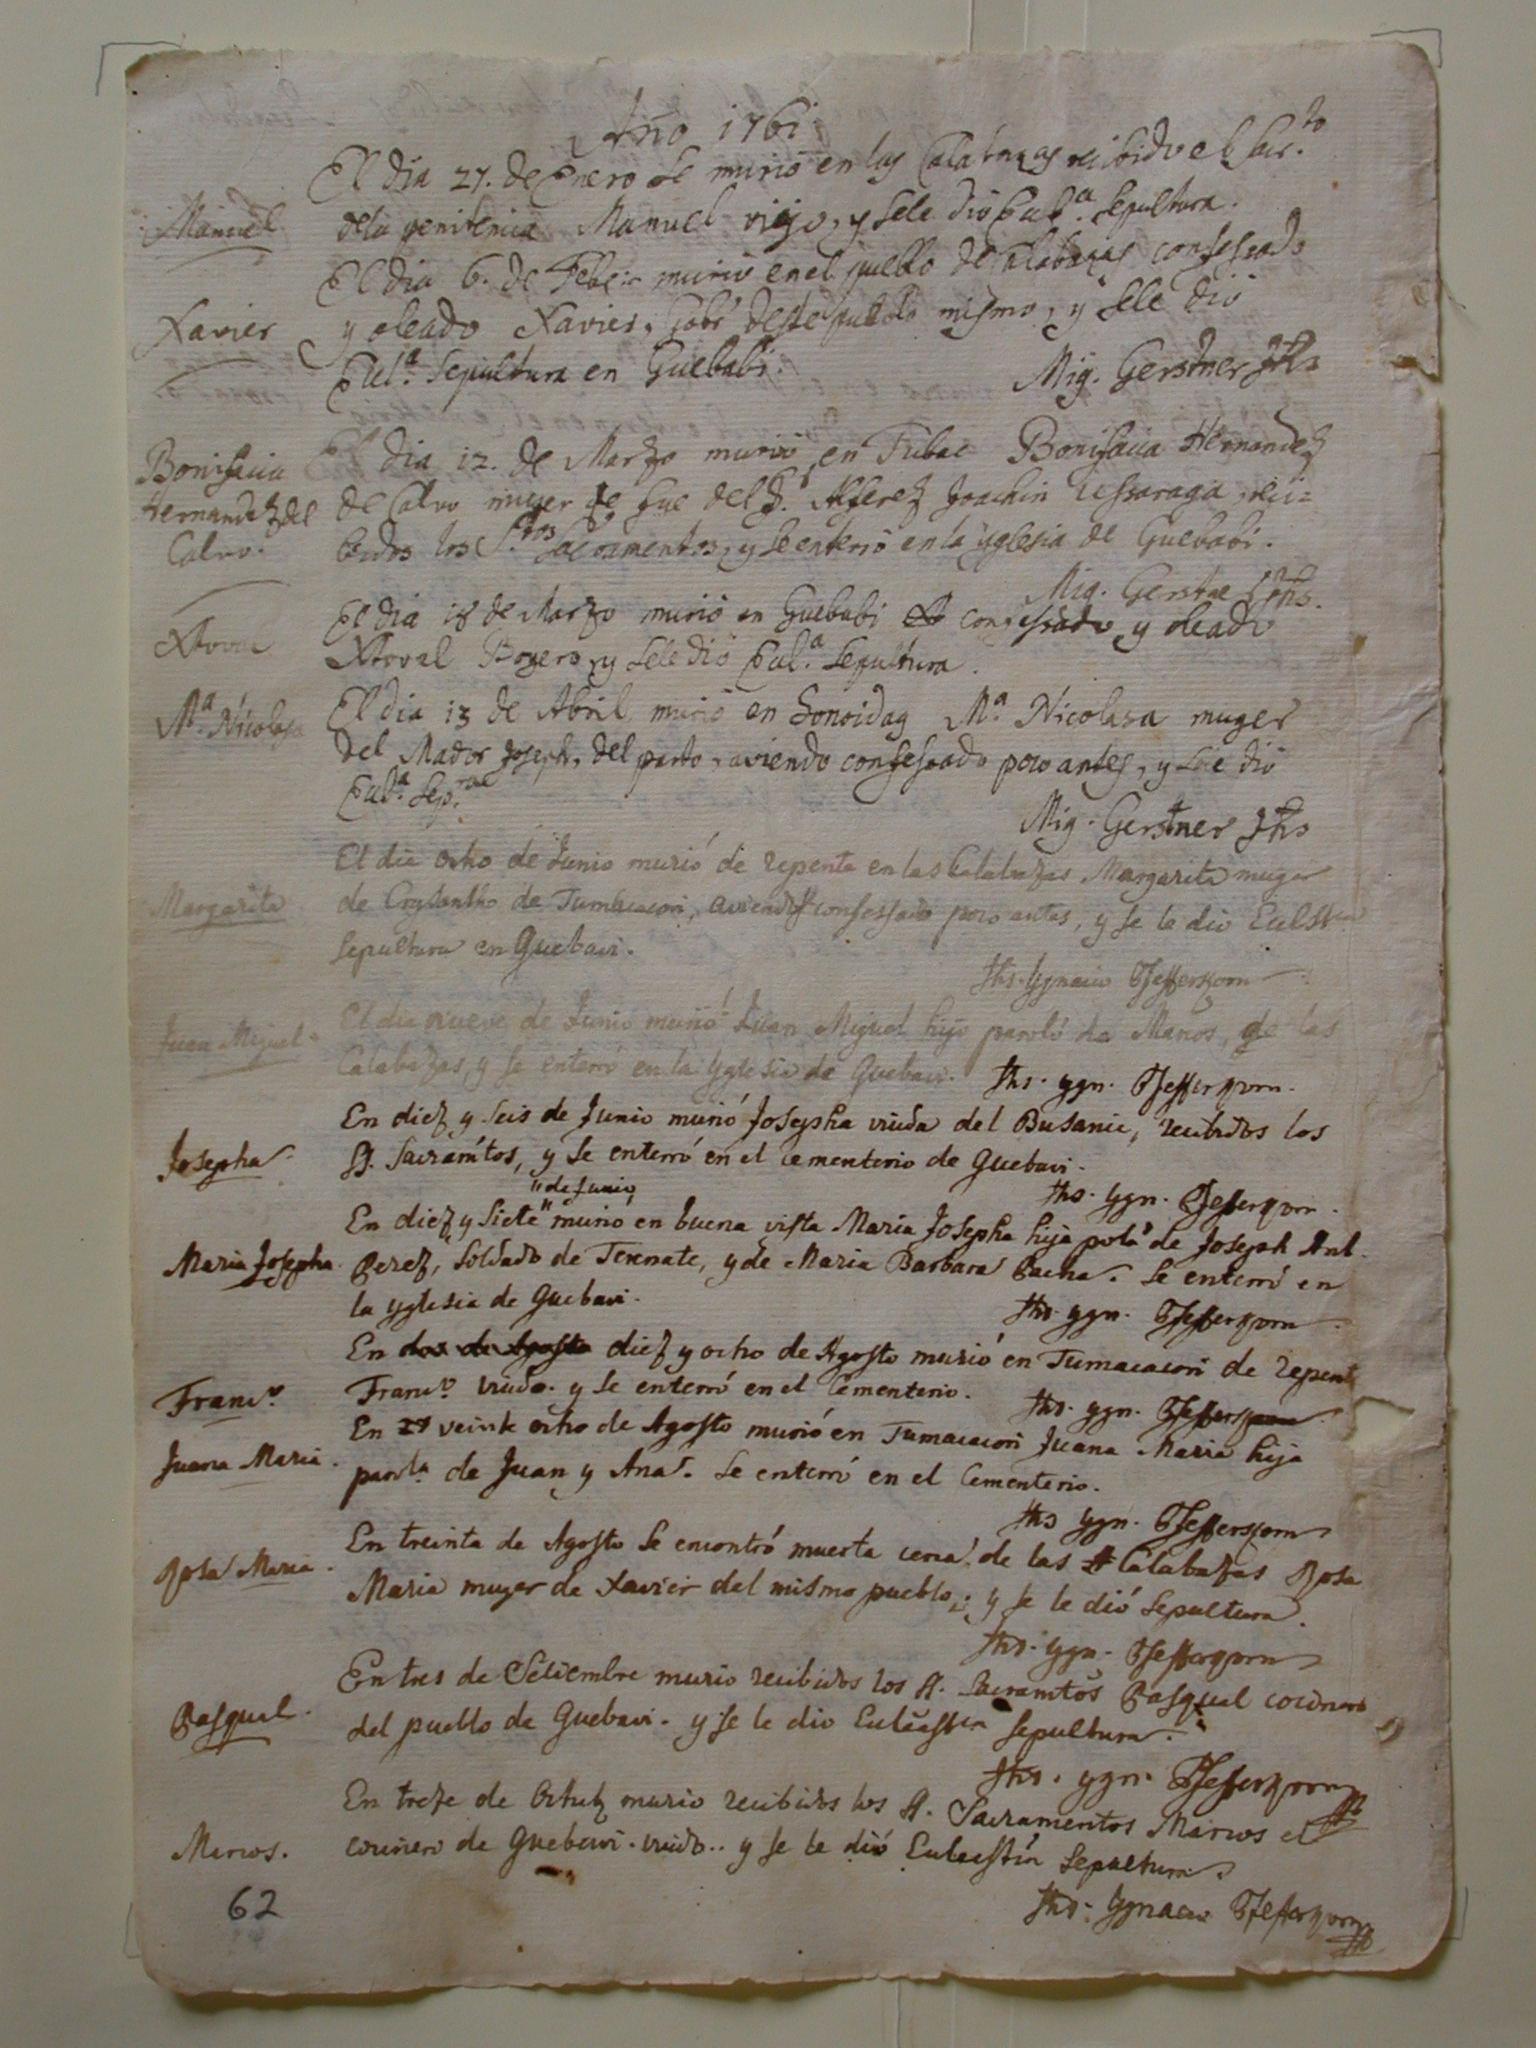 Año 1761
El dia 27. de Enero se murió en las Calabazas recibido el Sac.to
Manuel
de la penitencia Manuel viejo, y sele dió Ecl.a Sepultura.
El dia 6. de Febr. murió en el pueblo de Calabazas confessado
Xavier
y oleado Xavier, Gob.r deste pueblo mismo, y sele dió
Ecl.a Sepultura en Guebabi.
Mig. Gerstner Jhs
El dia 12. de Marzo murió en Tubac Bonifacia Hernandez
Bonifacia
Hernandez del
Calvo.
de Calvo muger que fue del S.r Alferez Joachin Ussaraga, reci=
bidos los S.tos Sacramentos, y se enterró en la Yglesia de Guebabi.
Mig. Gerstne Jhs.
El dia 18 de Marzo murió en Guebabi confessado y oleado
Xtoval
Xtoval Boyero, y sele dió Ecl.a Sepultura.
El dia 13 de Abril murió en Sonoidag M.a Nicolasa muger
M.a Nicolasa
del Mador Joseph, del parto, aviendo confessado poco antes, y sele dió
Ecl.a Sep.rae
Mig. Gerstner Jhs
El dia ocho de Junio murió de repente en las Calabazas Margarita muger
Margarita
de Crysantho de Tumacacori, aviendo confessado poco antes, y se le dio Eccl.stca
sepultura en Guebavi.
Jhs. Ygnacio Pfefferkorn
El dia nueve de Junio murió Juan Miguel hijo parolo de Marcos, de las
Juan Miguel
Calabazas, y se enterró en la Yglesia de Guebavi.
Jhs. Ygn. Pfefferkorn.
En diez y seis de Junio murió Josepha viuda del Busanic, recibidos los
Josepha
SS. Sacramtos, y se enterró en el cementerio de Guebavi.
Jhs. Ygn. Pfefferkorn.
"de Junio
En diez y siete " murió en buena vista Maria Josepha hija pola de Joseph Ant.
Maria Josepha.
Perez, soldado de Terrenate, y de Maria Barbara Baena. Se enterró en
la yglesia de Guebavi.
Jhs. Ygn. Pfefferkorn.
En dos de Agosto diez y ocho de Agosto murió en Tumacacori de repente
Franco.
Franco. viudo. y se enterró en el Cementerio.
Jhs. Ygn. Pfefferkorn.
En 28 veinte ocho de Agosto murió en Tumacacori Juana Maria hija
Juana Maria.
parola de Juan y Ana. Se enterró en el Cementerio.
Jhs Ygn. Pfefferkorn
En treinta de Agosto se encontró muerta cerca de las Calabazas Rosa
Rosa Maria.
Maria muger de Xavier del mismo pueblo; y se le dió sepultura.
Jhs. Ygn. Pfefferkorn
En tres de Setiembre murio recibidos los SS. Sacramtos Pasqual cocinero
Pasqual.
del pueblo de Guebavi. y se le dio Eccleastca sepultura.
Jhs. Ygn. Pfefferkorn
En treze de Octub murio recibidos los SS. Sacramentos Marcos el
Marcos.
cocinero de Guebavi. viudo.. y se le dió Eccleastca sepultura.
Jhs. Ygnacio Pfefferkorn
62